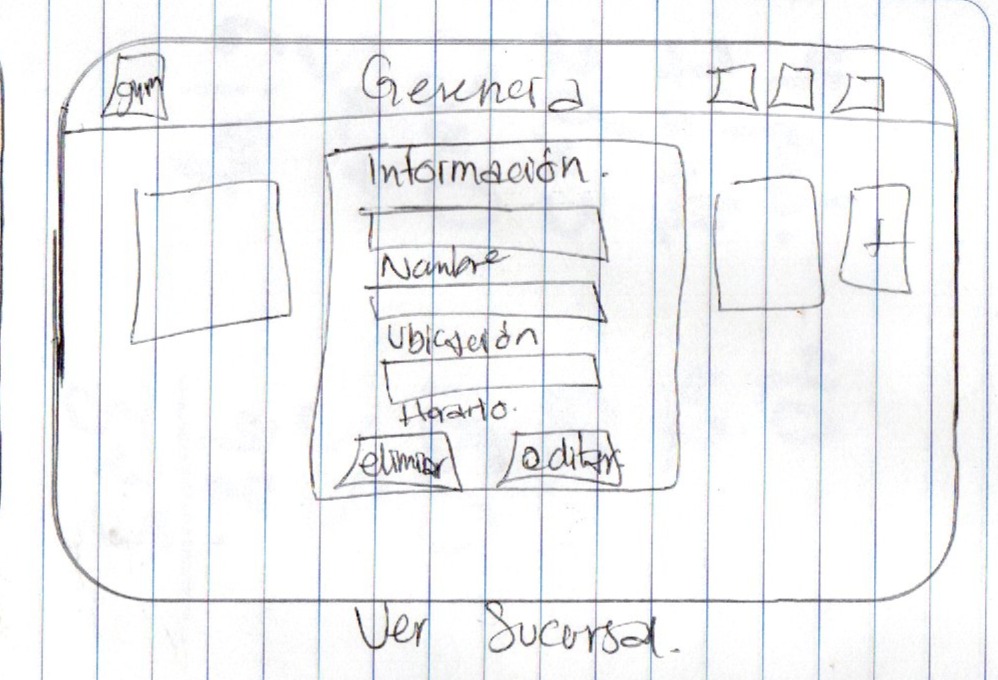 gym Gerencia
Información.
Nombre
Ubicación
Horario.
elimiar editar
+
Ver Sucursal.